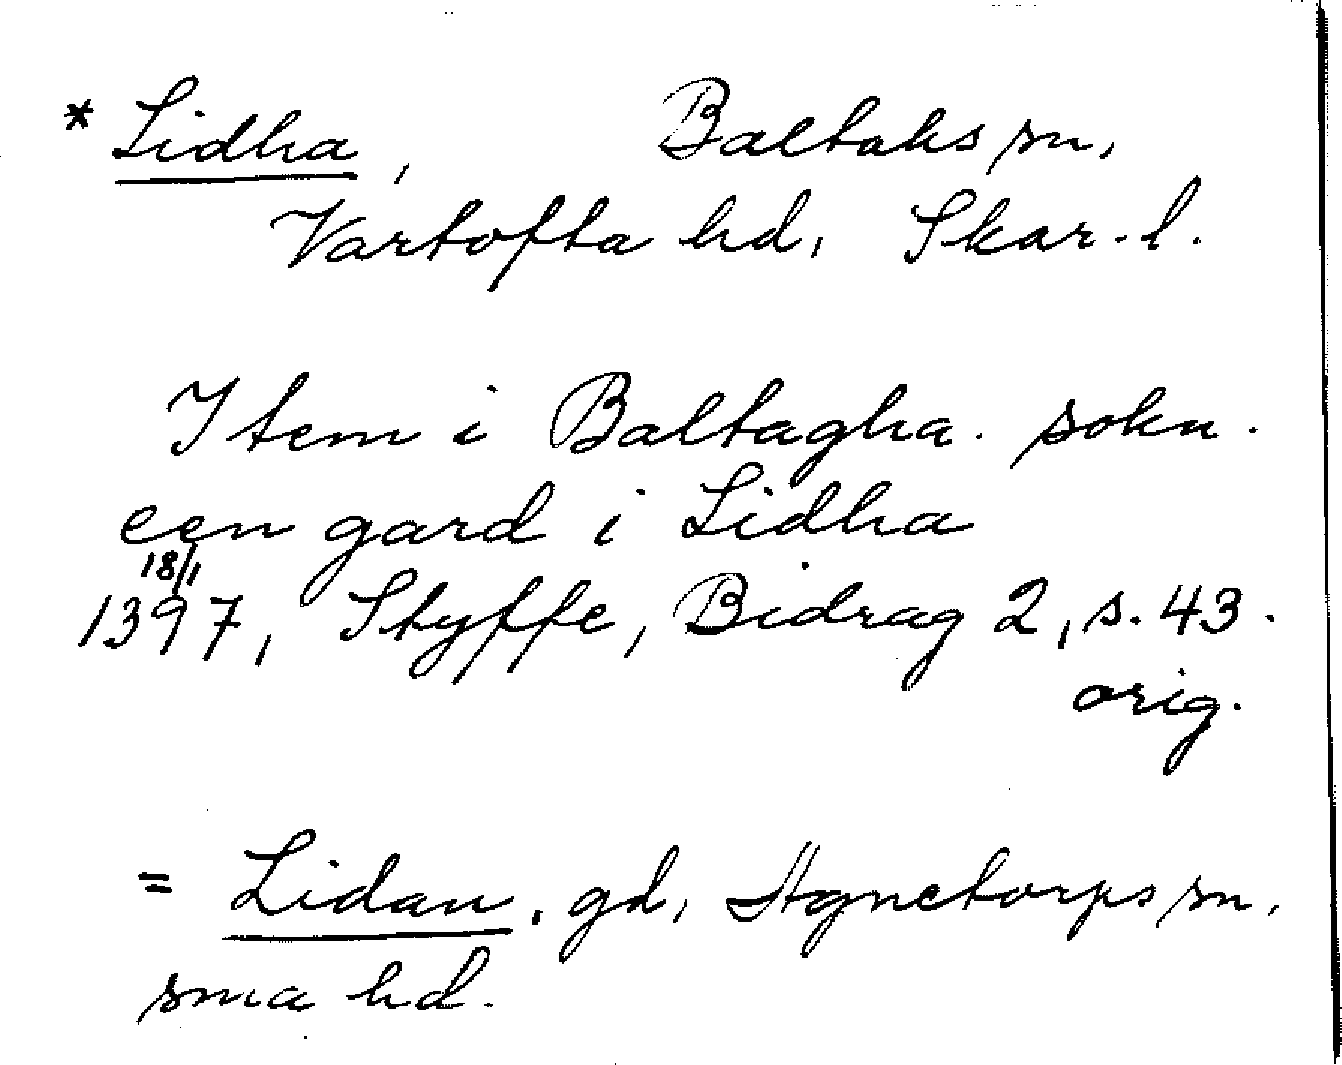 * Lidha, Baltaks sn,
Vartofta hd, Skar. l.
Item i Baltagha. sokn.
een gard i Lidha
18/1
1397, Styffe, Bidrag 2, s. 43.
orig.
= Lidan, gd, Agnetorps sn,
sma hd.